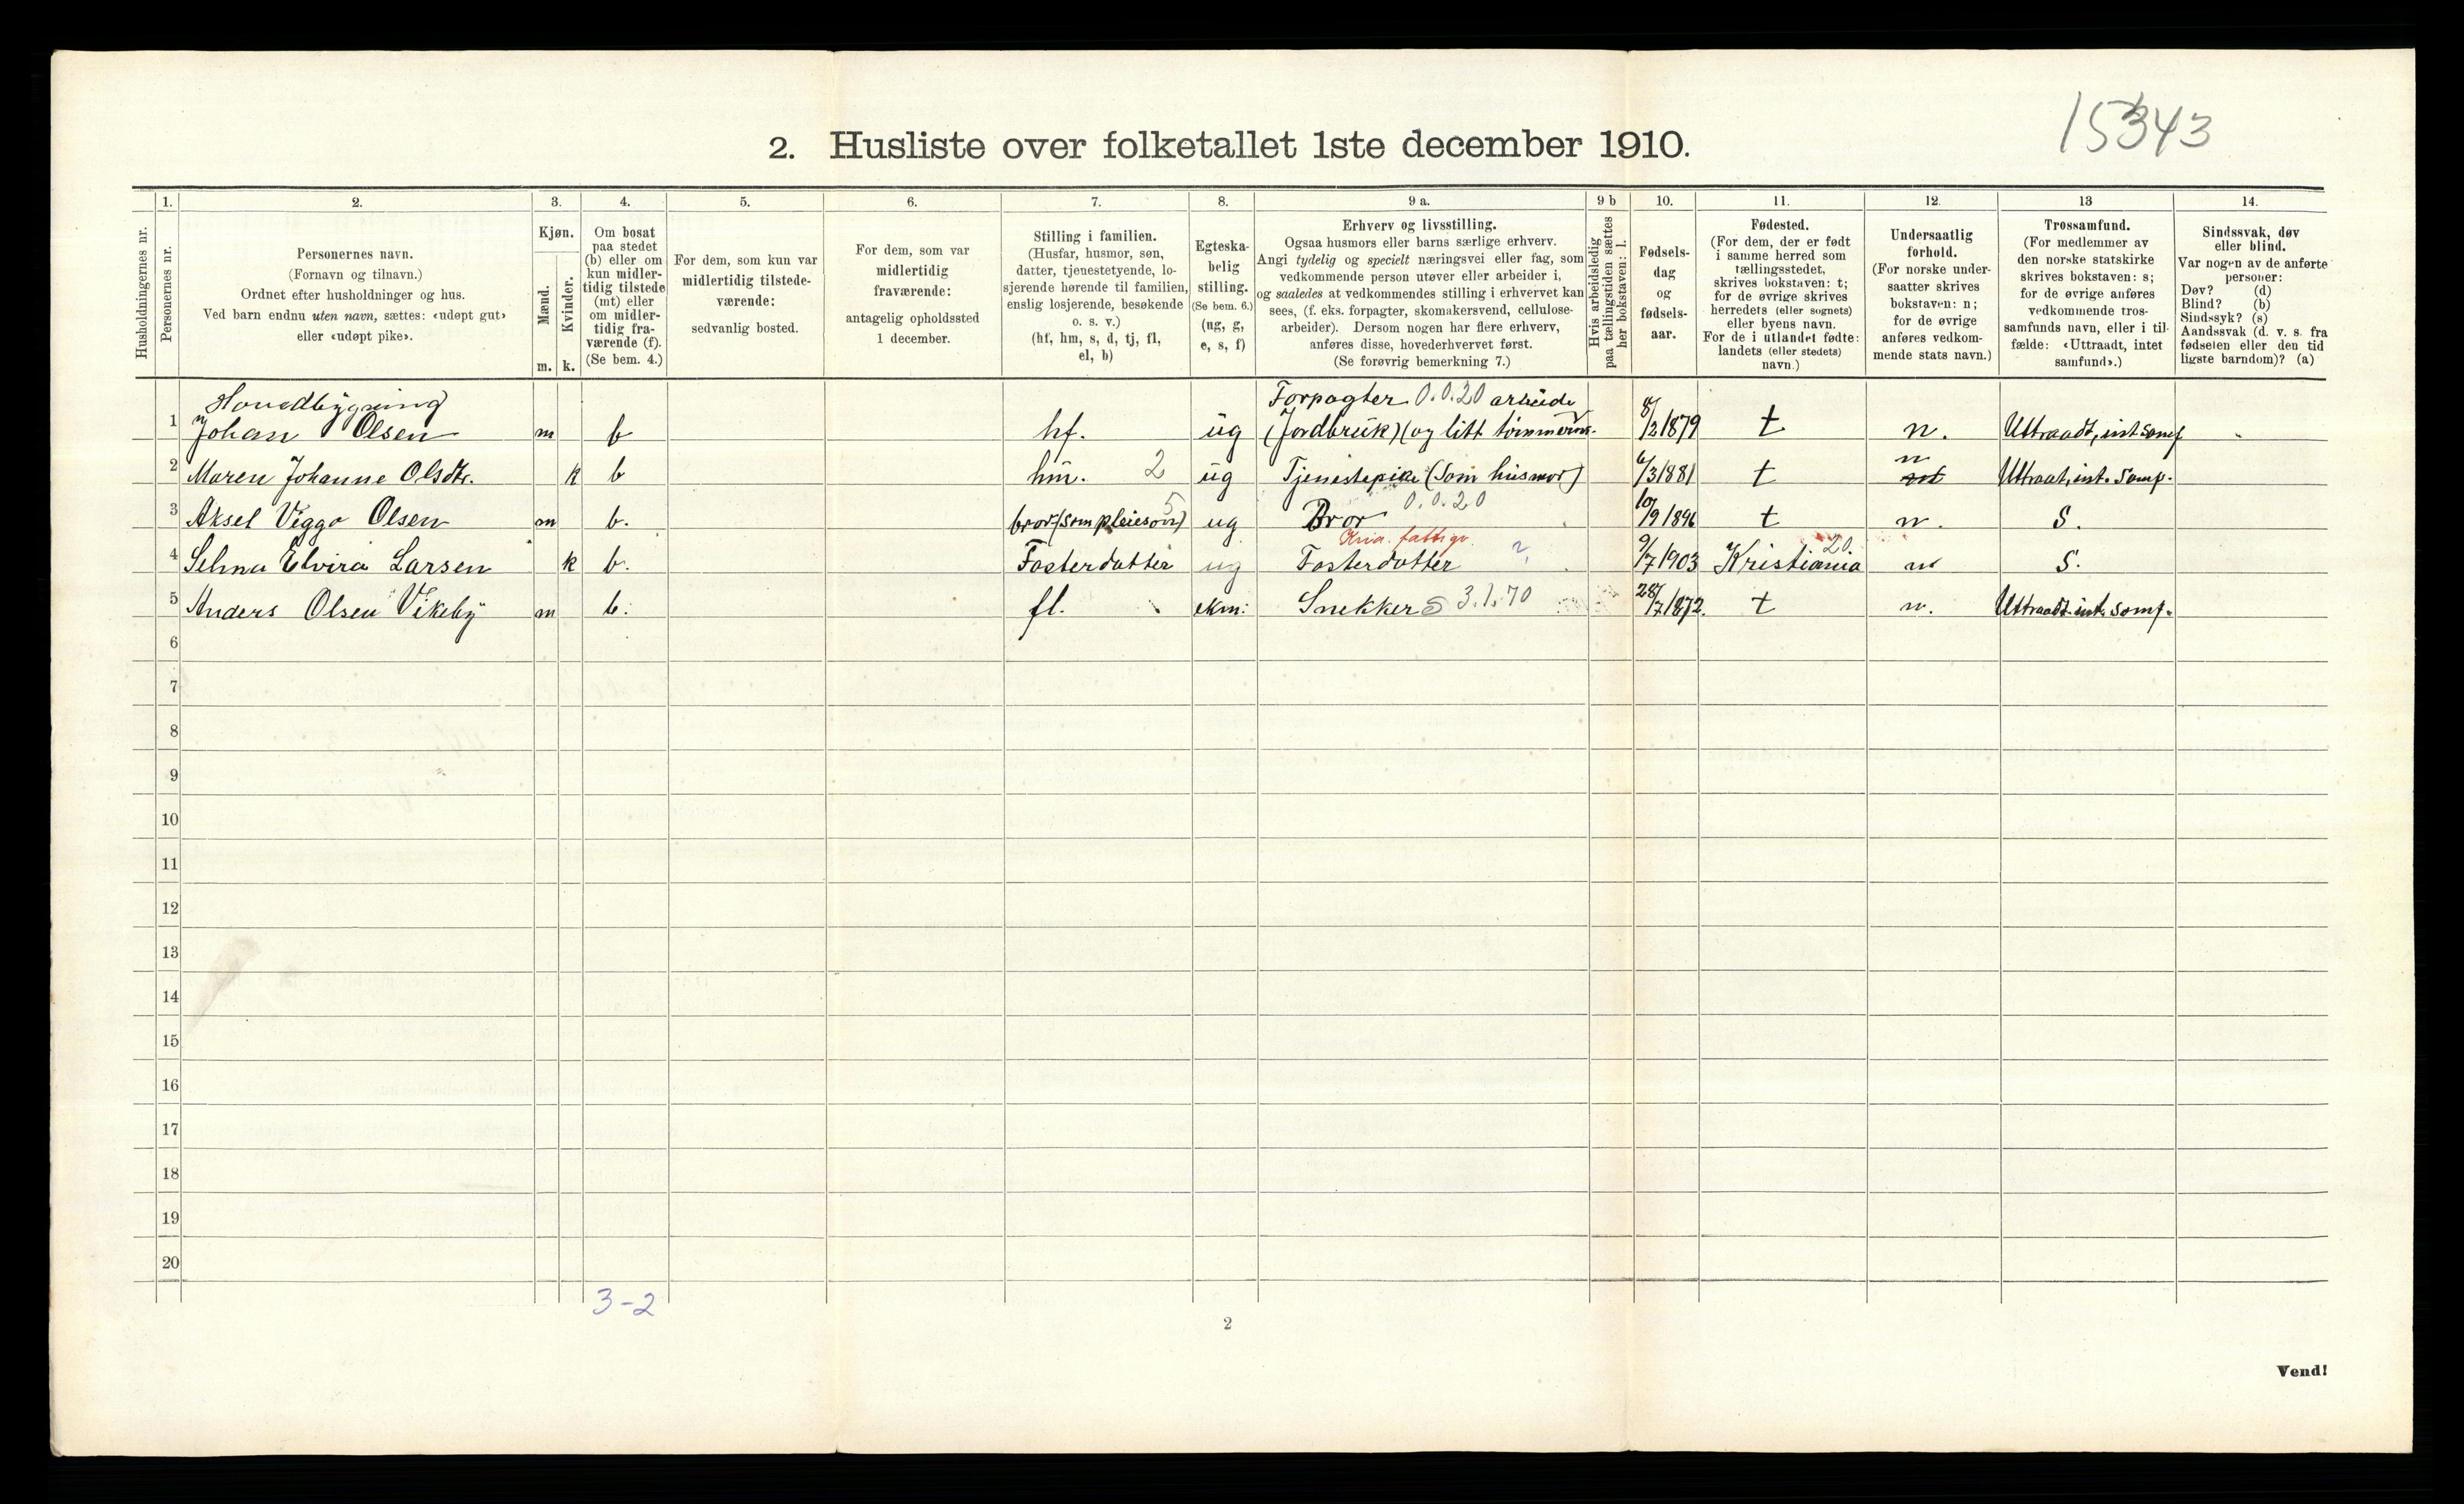 15343
2. Husliste over folketallet 1ste december 1910.
1. 2. 3. 4. 5. 6. 7. 8. 9 a. 9 b 10. 11. 12. 13 14.
Husholdningernes nr.
Personernes nr.
Personernes navn.
(Fornavn og tilnavn.)
Ordnet efter husholdninger og hus.
Ved barn endnu uten navn, sættes: «udøpt gut»
eller «udøpt pike».
Kjøn.
Mænd.
Kvinder.
m. k.
Om bosat
paa stedet
(b) eller om
kun midler-
tidig tilstede
(mt) eller
om midler-
tidig fra-
værende (f).
(Se bem. 4.)
For dem, som kun var
midlertidig tilstede-
værende:
sedvanlig bosted.
For dem, som var
midlertidig
fraværende:
antagelig opholdssted
1 december.
Stilling i familien.
(Husfar, husmor, søn,
datter, tjenestetyende, lo-
sjerende hørende til familien,
enslig losjerende, besøkende
o. s. v.)
(hf, hm, s, d, tj, fl,
el, b)
Egteska-
belig
stilling.
(Se bem. 6.)
(ug, g,
e, s, f)
Erhverv og livsstilling.
Ogsaa husmors eller barns særlige erhverv.
Angi tydelig og specielt næringsvei eller fag, som
vedkommende person utøver eller arbeider i,
og saaledes at vedkommendes stilling i erhvervet kan
sees, (f. eks. forpagter, skomakersvend, cellulose-
arbeider). Dersom nogen har flere erhverv,
anføres disse, hovederhvervet først.
(Se forøvrig bemerkning 7.)
Hvis arbeidsledig
paa tællingstiden sættes
her bokstaven: l.
Fødsels-
dag
og
fødsels-
aar.
Fødested.
(For dem, der er født
i samme herred som
tællingsstedet,
skrives bokstaven: t;
for de øvrige skrives
herredets (eller sognets)
eller byens navn.
For de i utlandet fødte:
landets (eller stedets)
navn.)
Undersaatlig
forhold.
(For norske under-
saatter skrives
bokstaven: n;
for de øvrige
anføres vedkom-
mende stats navn.)
Trossamfund.
(For medlemmer av
den norske statskirke
skrives bokstaven: s;
for de øvrige anføres
vedkommende tros-
samfunds navn, eller i til-
fælde: «Uttraadt, intet
samfund».)
Sindssvak, døv
eller blind.
Var nogen av de anførte
personer:
Døv? (d)
Blind? (b)
Sindssyk? (s)
Aandssvak (d. v. s. fra
fødselen eller den tid
ligste barndom)? (a)
Hovedbygning Forpagter 0.0.20 arbeide
1 Johan Olsen m b hf. ug (Jordbruk) (og litt tømmerm- 8/2 1879 t n. Uttraadt, int samf
2 Maren Johanne Olsdtr. k b hm. 2 ug Tjenestepike (som husmor) 6/3 1881 t n Uttraat, int. samf.
3 Aksel Viggo Olsen m b. bror (som pleiesøn) 5 ug Bror 0.0.20 10/9 1896 t n. S.
Kria. fattigv.
4 Selma Elvira Larsen k b. Fosterdatter ug Fosterdatter ? 9/7 1903 Kristiania 20. n S.
5 Anders Olsen Vikeby m b. fl. ekm: Snekker S 3.1.70 28/7 1872. t n. Uttraadt int. samf.
6
7
8
9
10
11
12
13
14
15
16
17
18
19
20
3-2
2
Vend!